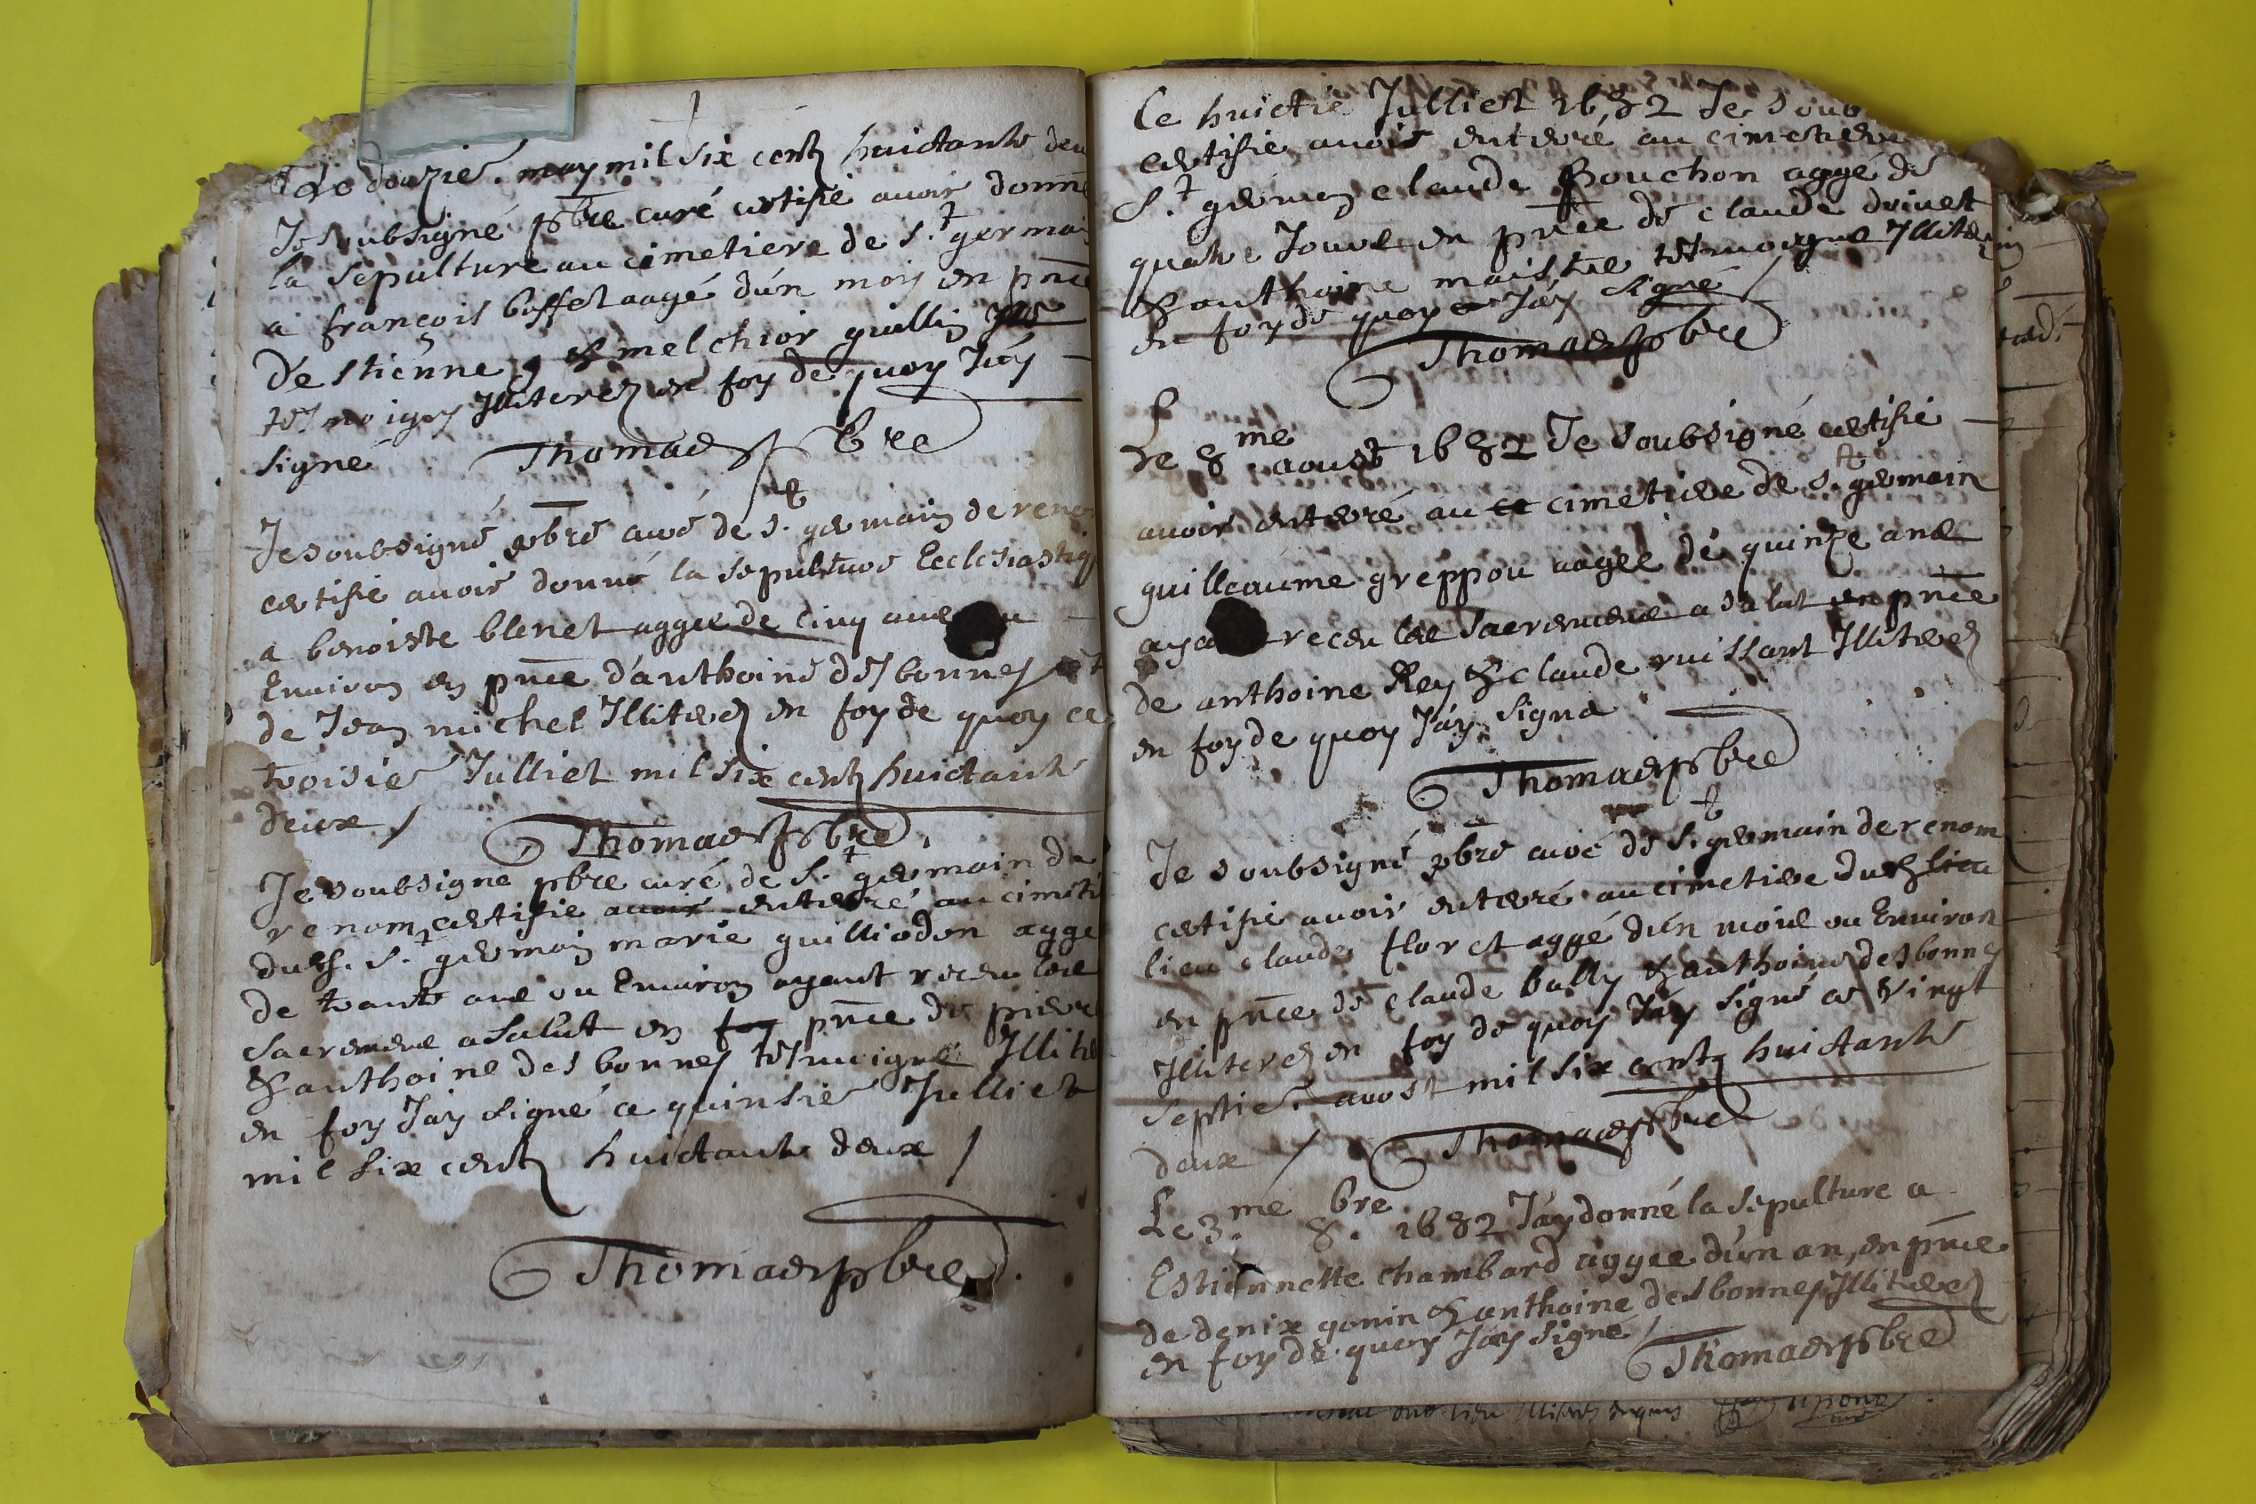 Le douzie may mil six centz huictante deu
Je soubsigné pbre curé certifie avoir donné
la sepulture au cimetiere de St germai
a françois boffet aagé d'un mois en pnce
D'estienne & melchior guillin
tesmoigns Illiterez en foy de quoy J'ay
signé Thomas pbre
Je soubsigné pbre curé de St germain de reno
certifie avoir donné la sepulture Ecclesiastiq
a benoiste blenet aggee de cinq ans ou
Environ en pnce d'anthoine desbonnes et
de Jean michel Illiterez en foy de quoy ce
troisie Julliet mil six centz huictante
deux / Thomas pbre
Je soubsigne pbre curé de St germain de
renom certifie avoir enterré au cimeti
dud. St germain marie guilliodon agge
de trante ans ou Environ ayant receu les
sacremens a salut en foy pnce de pierre
& anthoine desbonnes tesmoigns Illite
en foy J'ay signé ce quinsie Julliet
mil six centz huictante deux /
Thomas pbre
Ce huictie Julliet 1682 Je soub
certifie avoir enterré au cimetiere
St germain claude Bouchon aggé de
quatre Jours en pnce de claude drivet
& anthoine maistre tesmoigns Illiterez
en foy de quoy J'ay signé /
Thomas pbre
Le 8me aoust 1682 Je soubsigné certifie
avoir enterré au ce cimetiere de St germain
guilleaume greppou aagée de quinze ans
aya receu les sacremens a salut en pnce
de anthoine Rey & claude ruissant Illiterez
en foy de quoy J'ay signe
Thomas pbre
Je soubsigné pbre curé de St germain de renom
certifie avoir enterré au cimetiere dud lieu
lieu claude floret aggé d'un mois ou Environ
en pnce de claude bally & anthoine desbonnes
Illiterez en foy de quoy J'ay signé ce vingt
septie aoost mil six centz huictante
deux / Thomas pbre
Le 3.me 8.bre 1682 J'ay donné la sepulture a
Estiennette chambard aggee d'un an, en pnce
de denix gonin & anthoine desbonnes Illiterez
en foy de quoy J'ay signé /
Thomas pbre